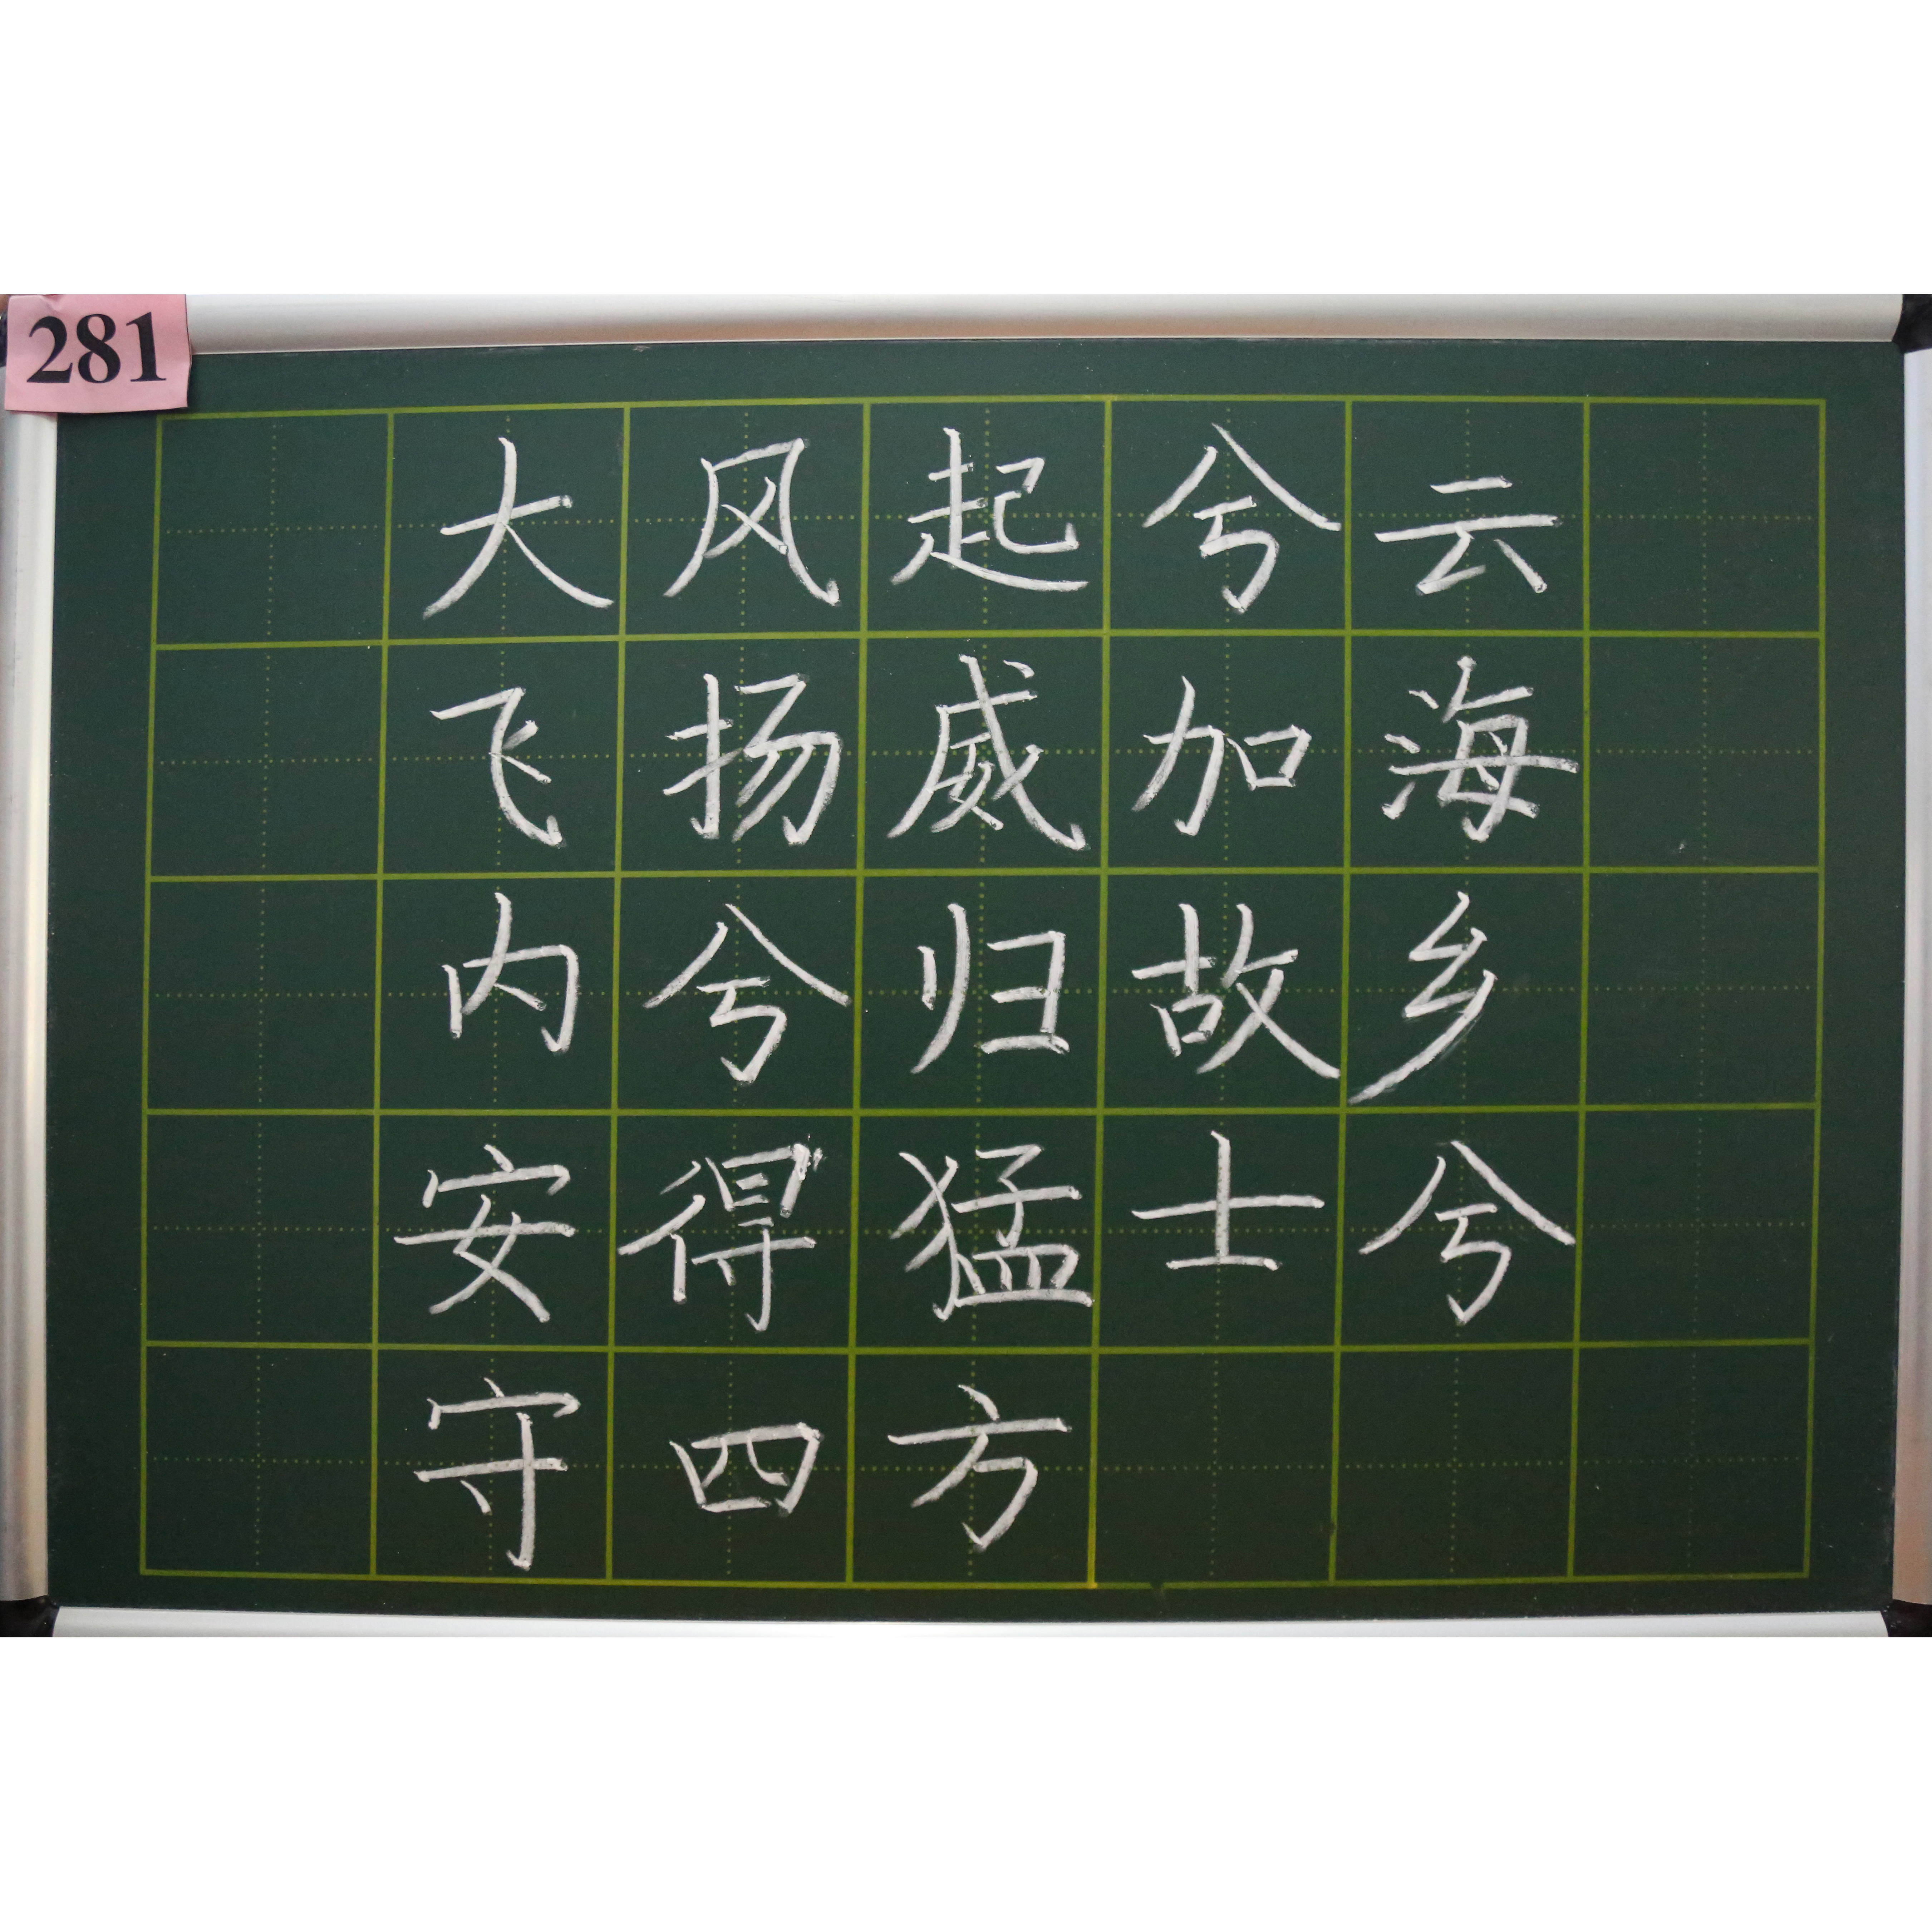 281
大风起兮云
飞扬威加海
内兮归故乡
安得猛士兮
守四方